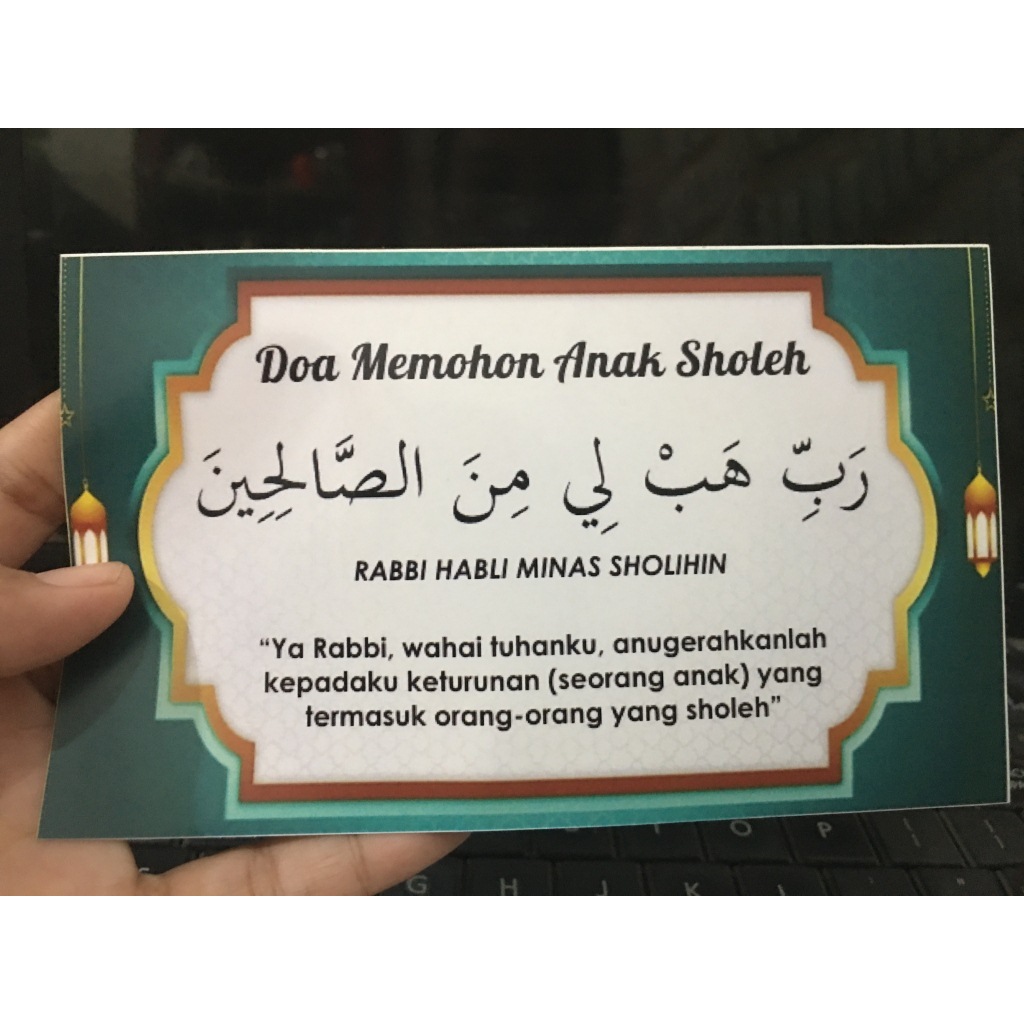 Doa Memohon Anak Sholeh
رَبِّ هَبْ لِي مِنَ الصَّالِحِينَ
RABBI HABLI MINAS SHOLIHIN
“Ya Rabbi, wahai tuhanku, anugerahkanlah
kepadaku keturunan (seorang anak) yang
termasuk orang-orang yang sholeh”
O P
G H J K L